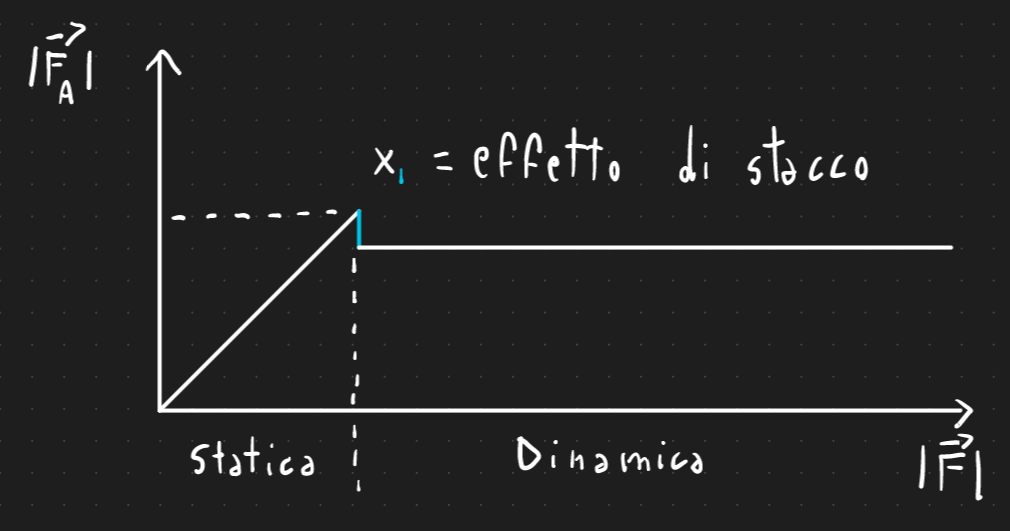 |F⃗_A|
x₁ = effetto di stacco
statica
Dinamica
|F⃗|